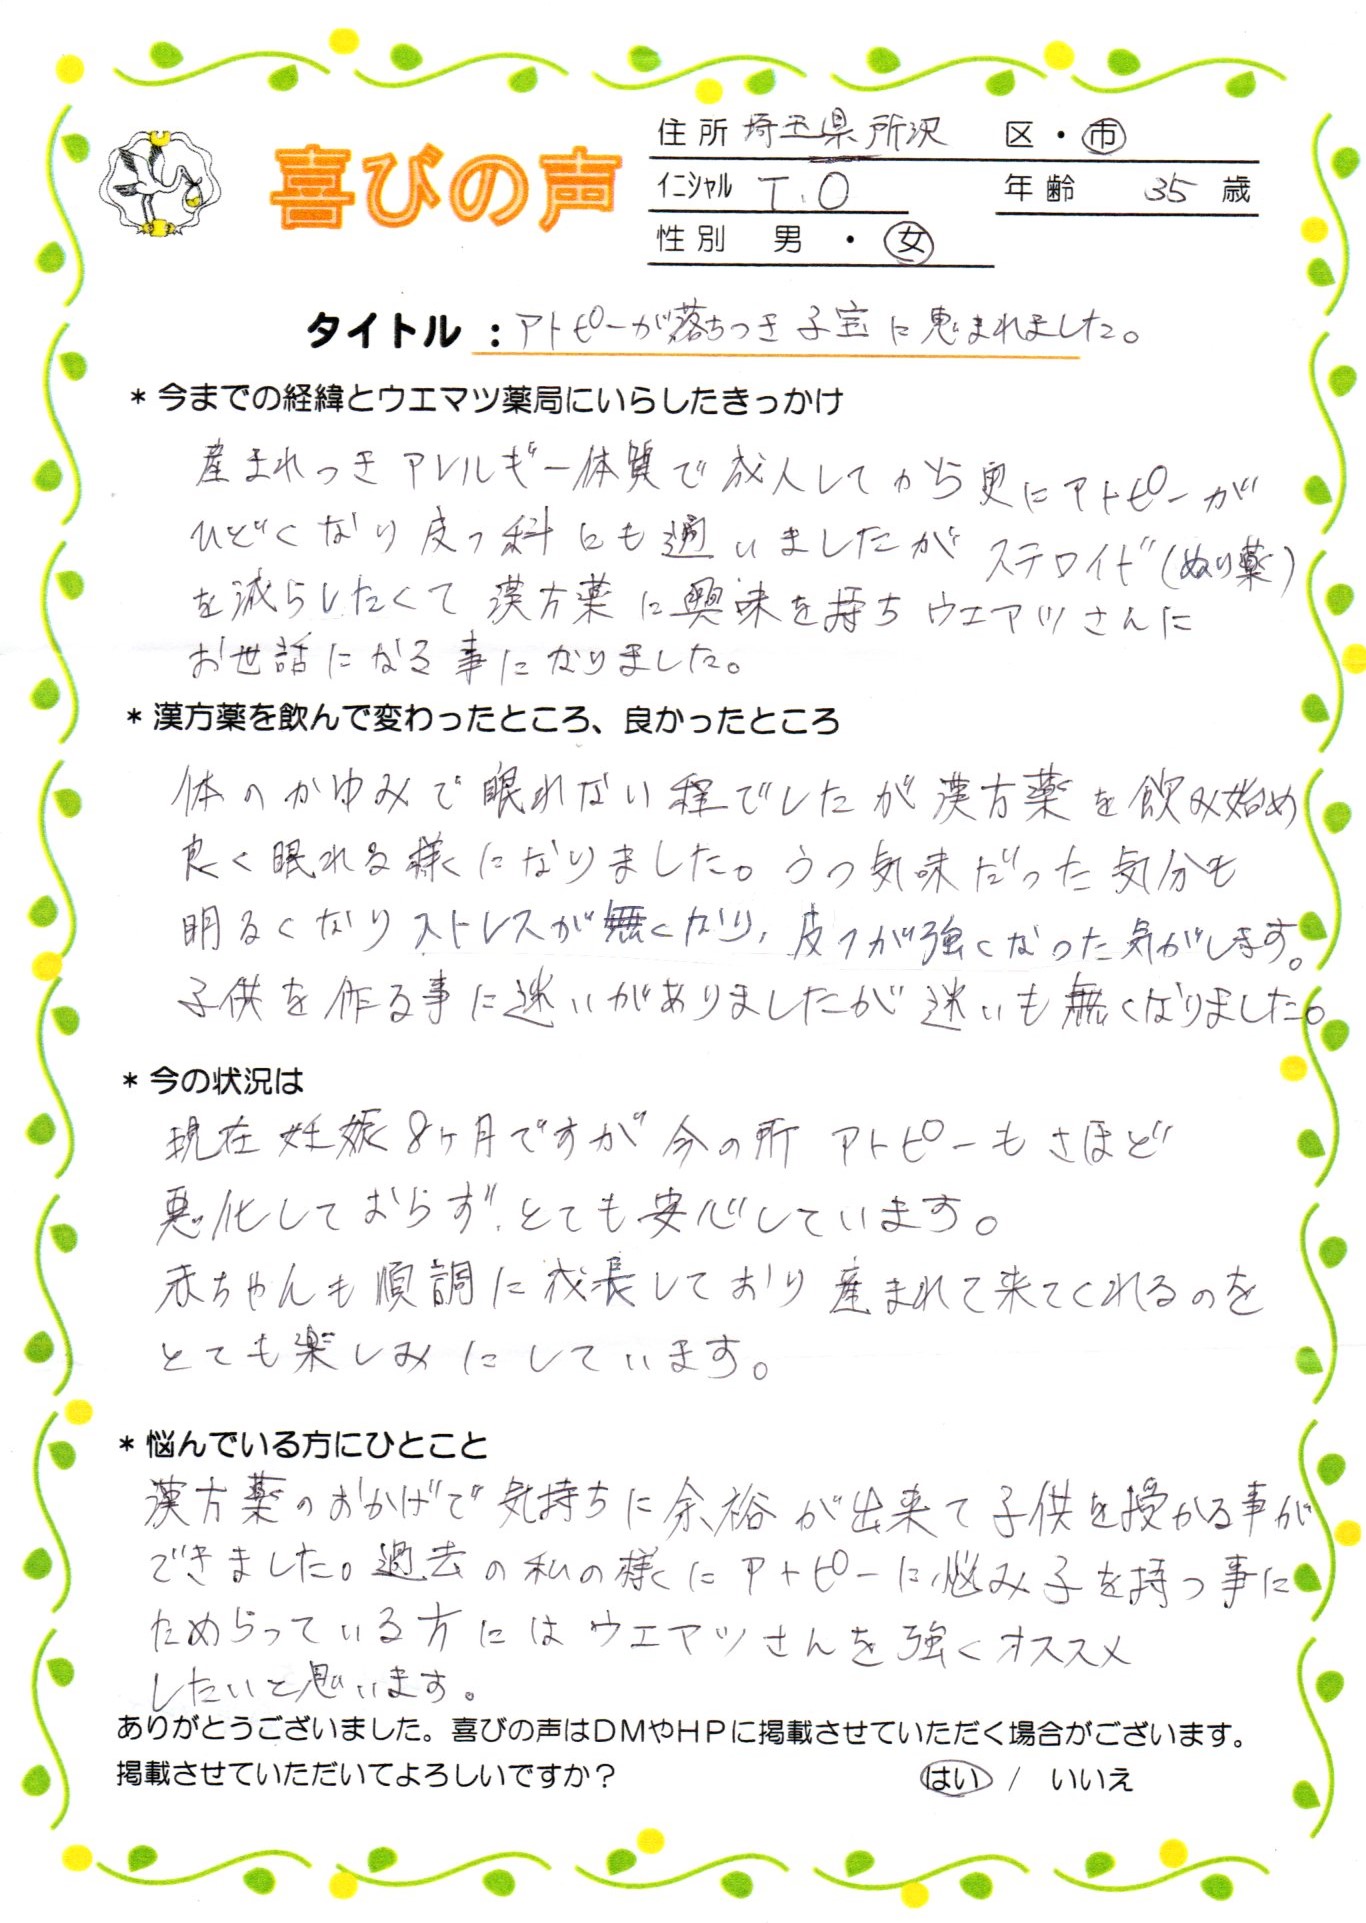 喜びの声
住所 埼玉県所沢 区・市
イニシャル T.O 年齢 35 歳
性別 男・女
タイトル：アトピーが落ちつき子宝に恵まれました。
＊今までの経緯とウエマツ薬局にいらしたきっかけ
産まれつきアレルギー体質で成人してから更にアトピーが
ひどくなり皮フ科にも通いましたが ステロイド(ぬり薬)
を減らしたくて漢方薬に興味を持ちウエマツさんに
お世話になる事になりました。
＊漢方薬を飲んで変わったところ、良かったところ
体のかゆみで眠れない程でしたが漢方薬を飲み始め
良く眠れる様になりました。うつ気味だった気分も
明るくなりストレスが無くなり、皮フが強くなった気がします。
子供を作る事に迷いがありましたが迷いも無くなりました。
＊今の状況は
現在妊娠8ヶ月ですが今の所 アトピーもさほど
悪化しておらず、とても安心しています。
赤ちゃんも順調に成長しており産まれて来てくれるのを
とても楽しみにしています。
＊悩んでいる方にひとこと
漢方薬のおかげで気持ちに余裕が出来て子供を授かる事が
できました。過去の私の様にアトピーに悩み子を持つ事に
ためらっている方にはウエマツさんを強くオススメ
したいと思います。
ありがとうございました。喜びの声はDMやHPに掲載させていただく場合がございます。
掲載させていただいてよろしいですか？ はい / いいえ